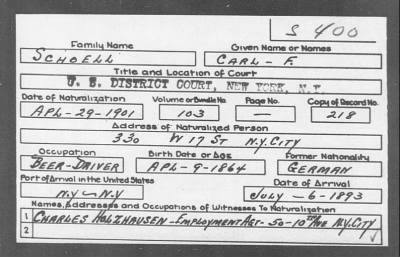 S 400
Family Name Given Name or Names
SCHOELL CARL - F.
Title and Location of Court
U. S. DISTRICT COURT, NEW YORK, N.Y.
Date of Naturalization Volume or Bundle No. Page No. Copy of Record No.
APL-29-1901 103 — 218
Address of Naturalized Person
330 W 17 ST N.Y.CITY
Occupation Birth Date or Age Former Nationality
BEER-DRIVER APL-9-1864 GERMAN
Port of Arrival in the United States Date of Arrival
N.Y - N.Y JULY - 6-1893
Names, Addresses and Occupations of Witnesses To Naturalization
1 CHARLES HOLZHAUSEN - EMPLOYMENT AGT - 50-10TH AVE N.Y.CITY
2